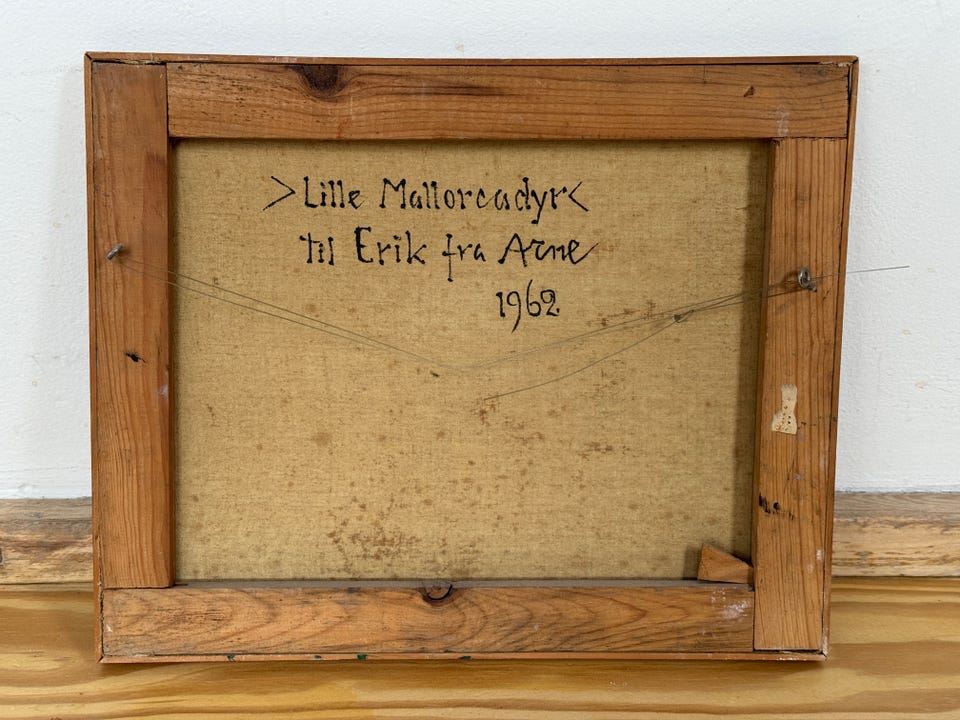 >Lille Mallorcadyr<
til Erik fra Arne
1962